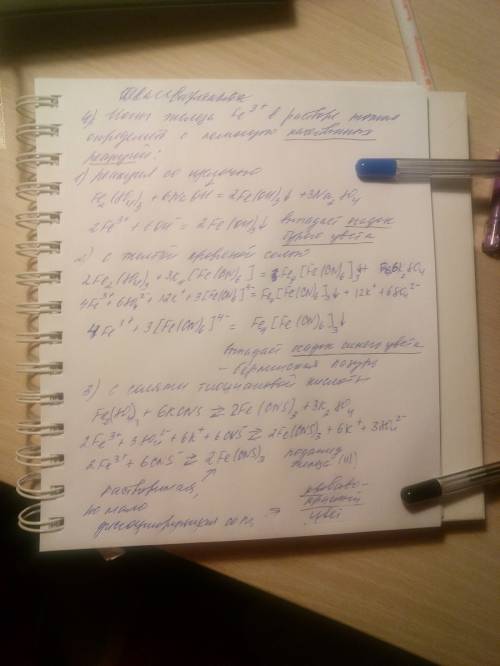 4) Ионы железа Fe³⁺ в растворе можно
определить с помощью качественных
реакций:
1) реакция со щелочью
Fe₂(SO₄)₃ + 6NaOH = 2Fe(OH)₃↓ + 3Na₂SO₄
2Fe³⁺ + 6OH⁻ = 2Fe(OH)₃↓ выпадает осадок
бурого цвета
2) с желтой кровяной солью
2Fe₂(SO₄)₃ + 3K₄[Fe(CN)₆] = Fe₄[Fe(CN)₆]₃↓ + 6K₂SO₄
4Fe³⁺ + 6SO₄²⁻ + 12K⁺ + 3[Fe(CN)₆]⁴⁻ = Fe₄[Fe(CN)₆]₃↓ + 12K⁺ + 6SO₄²⁻
4Fe³⁺ + 3[Fe(CN)₆]⁴⁻ = Fe₄[Fe(CN)₆]₃↓
выпадает осадок синего цвета
- берлинская лазурь
3) с солями тиоциановой кислоты
Fe₂(SO₄)₃ + 6KCNS ⇄ 2Fe(CNS)₃ + 3K₂SO₄
2Fe³⁺ + 3SO₄²⁻ + 6K⁺ + 6CNS⁻ ⇄ 2Fe(CNS)₃ + 6K⁺ + 3SO₄²⁻
2Fe³⁺ + 6CNS⁻ ⇄ 2Fe(CNS)₃ железа (III)
растворимая,
но мало
диссоциирующая соль ⇒ кроваво-
красный
цвет